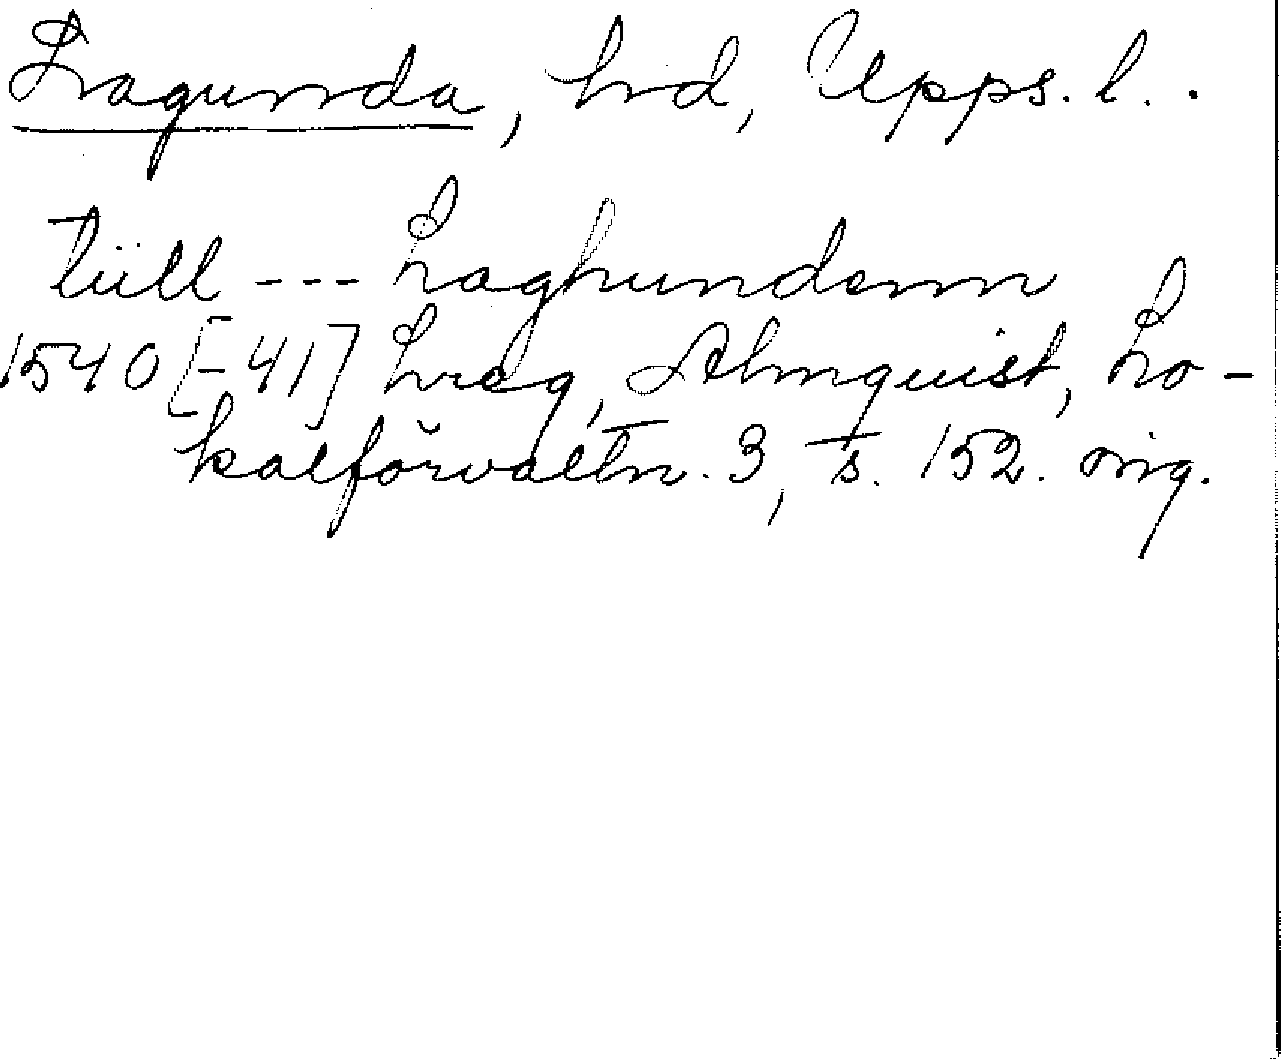 Lagunda, hd, Upps. l..
tiill --- Laghundenn
1540 [-41] Lreg, Almquist, Lo-
kalförvaltn. 3, s. 152. orig.